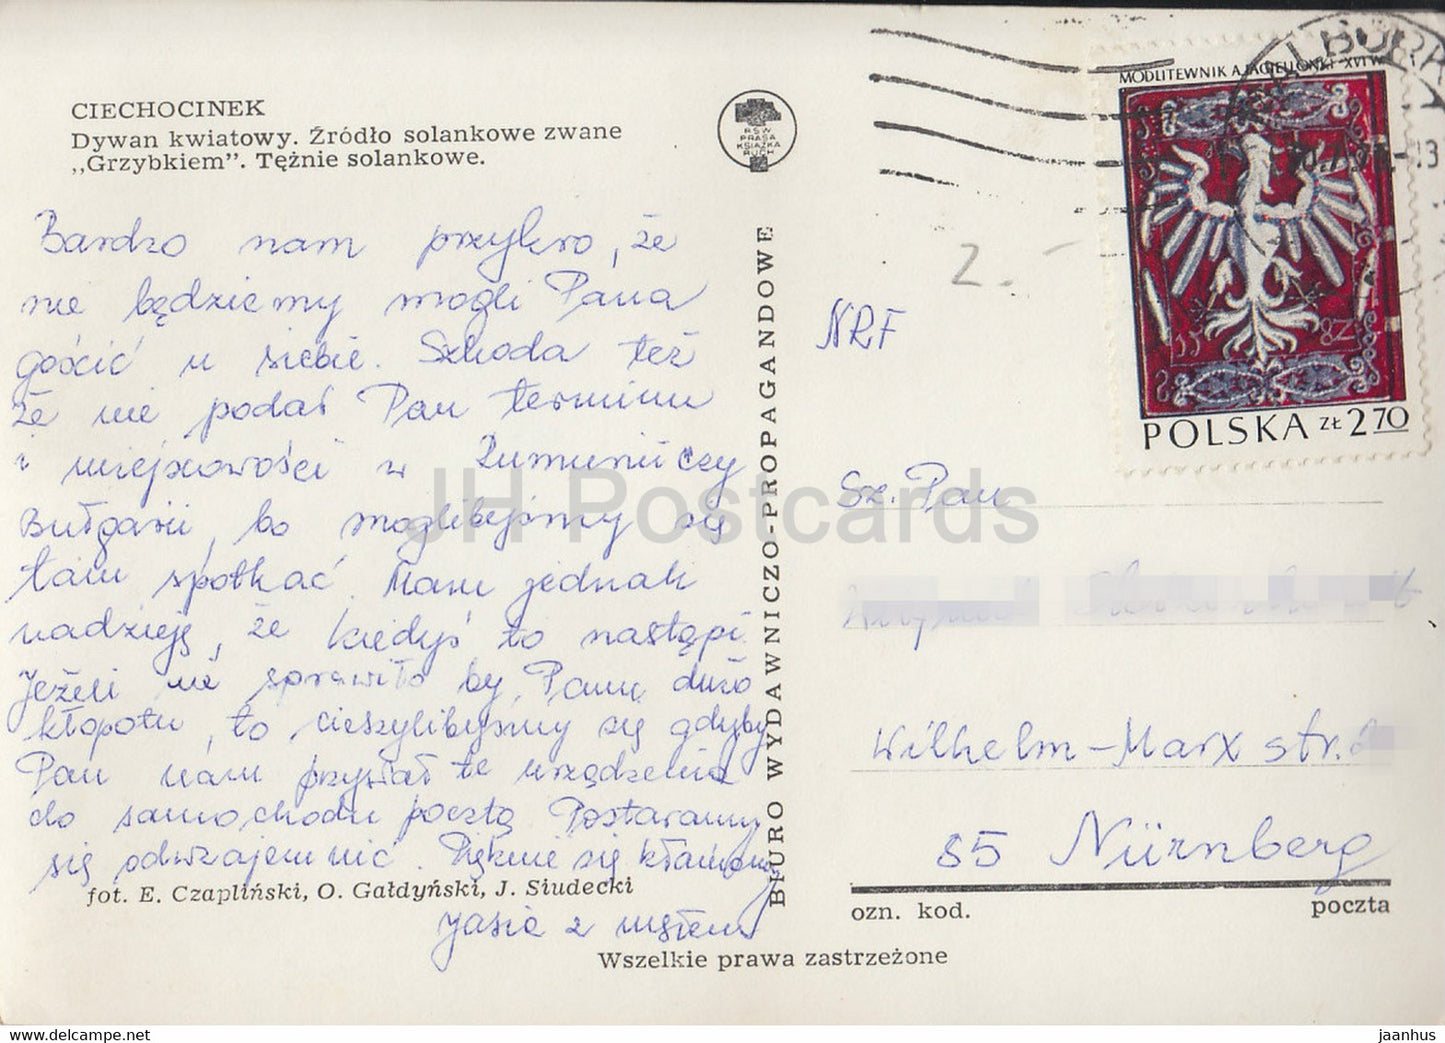 CIECHOCINEK
Dywan kwiatowy. Źródło solankowe zwane
,,Grzybkiem”. Tężnie solankowe.
RSW
PRASA
KSIĄŻKA
RUCH
Bardzo nam przykro, że
nie będziemy mogli Pana
gościć u siebie. Szkoda też
że nie podał Pan terminu
i miejscowości w Rumunii czy
Bułgarii, bo moglibyśmy się
tam spotkać. Mam jednak
nadzieję, że kiedyś to nastąpi.
Jeżeli nie sprawiło by Panu dużo
kłopotu, to cieszylibyśmy się gdyby
Pan nam przysłał te urządzenia
do samochodu pocztą. Postaramy
się odwzajemnić. Pięknie się kłaniamy
Jasia z mężem
fot. E. Czapliński, O. Gałdyński, J. Siudecki
Wszelkie prawa zastrzeżone
BIURO WYDAWNICZO-PROPAGANDOWE
MODLITEWNIK A.JAGIELLONKI XVI W
POLSKA ZŁ 2 70
2.-
NRF
Sz. Pan
Wilhelm-Marx str.
85 Nürnberg
ozn. kod.
poczta
JH Postcards
https://www.delcampe.net
jaanhus